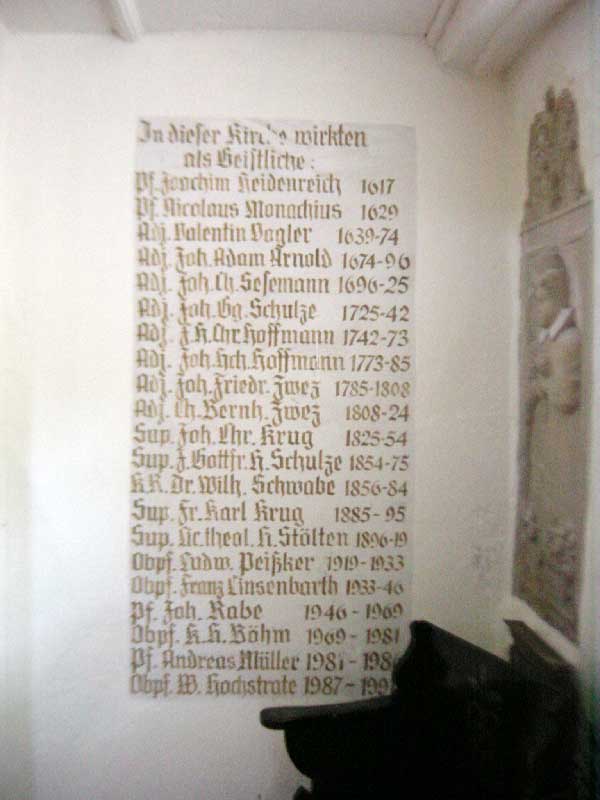 In dieser Kirche wirkten
als Geistliche:
Pf. Joachim Heidenreich 1617
Pf. Nicolaus Monachius 1629
Adj. Valentin Vogler 1639-74
Adj. Joh. Adam Arnold 1674-96
Adj. Joh. Ch. Sesemann 1696-25
Adj. Joh. Gg. Schulze 1725-42
Adj. J. H. Chr. Hoffmann 1742-73
Adj. Joh. Hch. Hoffmann 1773-85
Adj. Joh. Friedr. Zwez 1785-1808
Adj. Ch. Bernh. Zwez 1808-24
Sup. Joh. Chr. Krug 1825-54
Sup. J. Gottfr. H. Schulze 1854-75
K.R. Dr. Wilh. Schwabe 1856-84
Sup. Fr. Karl Krug 1885-95
Sup. Lic. theol. H. Stölten 1896-19
Obpf. Ludw. Peißker 1919-1933
Obpf. Franz Linsenbarth 1933-46
Pf. Joh. Rabe 1946-1969
Obpf. K. H. Böhm 1969-1981
Pf. Andreas Müller 1981-
Obpf. W. Hochstrate 1987-